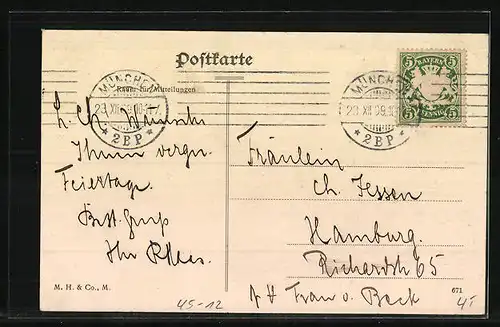 Postkarte
Raum für Mitteilungen
MÜNCHEN
23 XII 09.10
* 2BP *
MÜNCHEN
23 XII 09.10
* 2BP *
BAYERN
5 5
5 5
PFENNIG
L. Ch. Wünsche
Ihnen vergn.
Feiertage.
Best. Gruß
Ihr
Fräulein
Ch. Jessen
Hamburg.
Richardstr 65
Frau v. Beck
M. H. & Co., M.
45-12
671